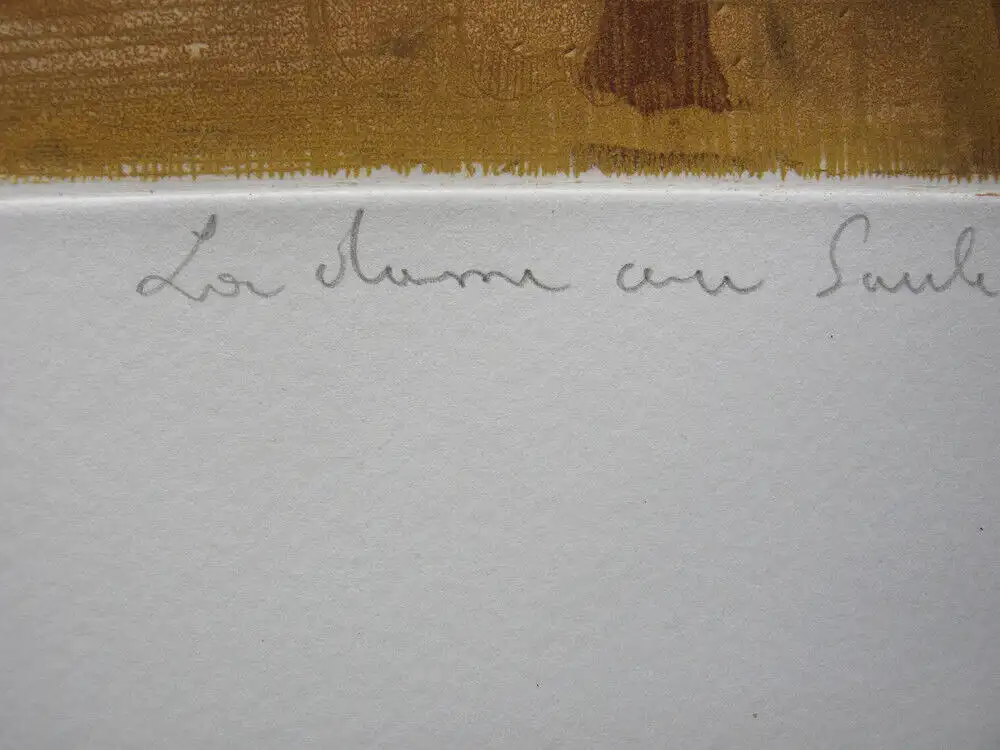 La dame au Saule